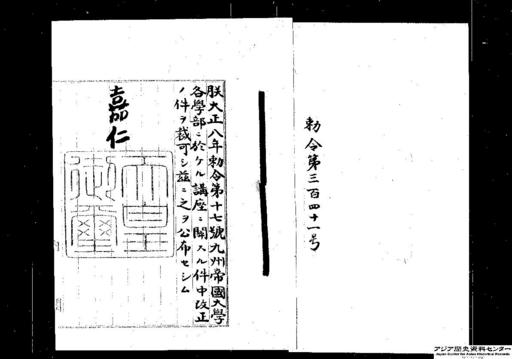 勅令第三百四十一号
朕大正八年勅令第十七號九州帝國大學
各學部ニ於ケル講座ニ關スル件中改正
ノ件ヲ裁可シ茲ニ之ヲ公布セシム
嘉仁
天皇
御璽
アジア歴史資料センター
Japan Center for Asian Historical Records